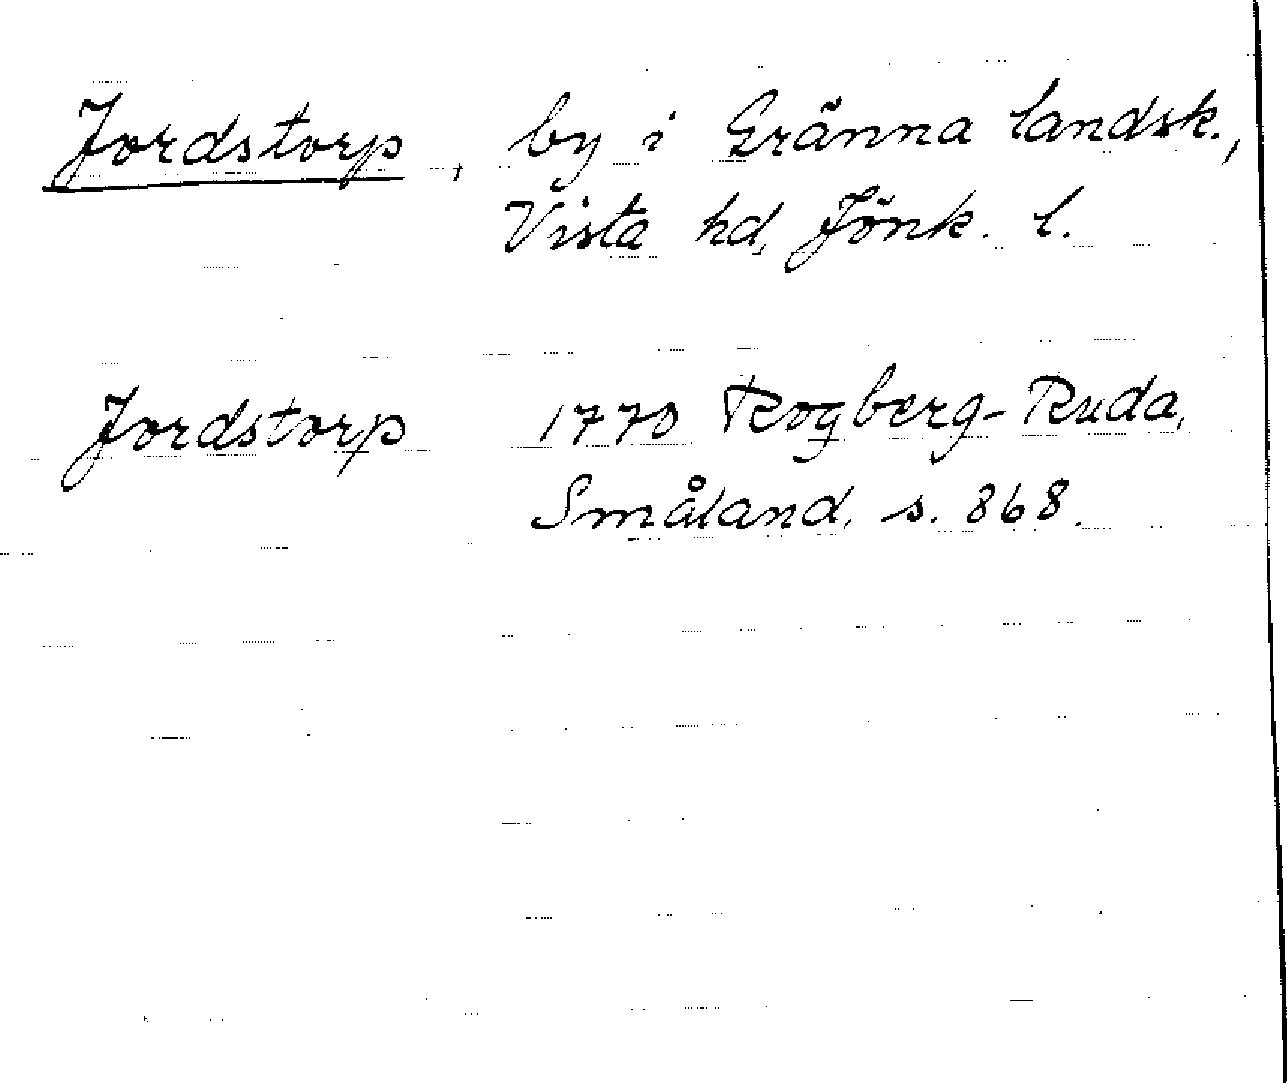 Jordstorp, by i Gränna landsk.,
Vista hd, Jönk. l.
Jordstorp 1770 Rogberg-Ruda,
Småland, s. 868.